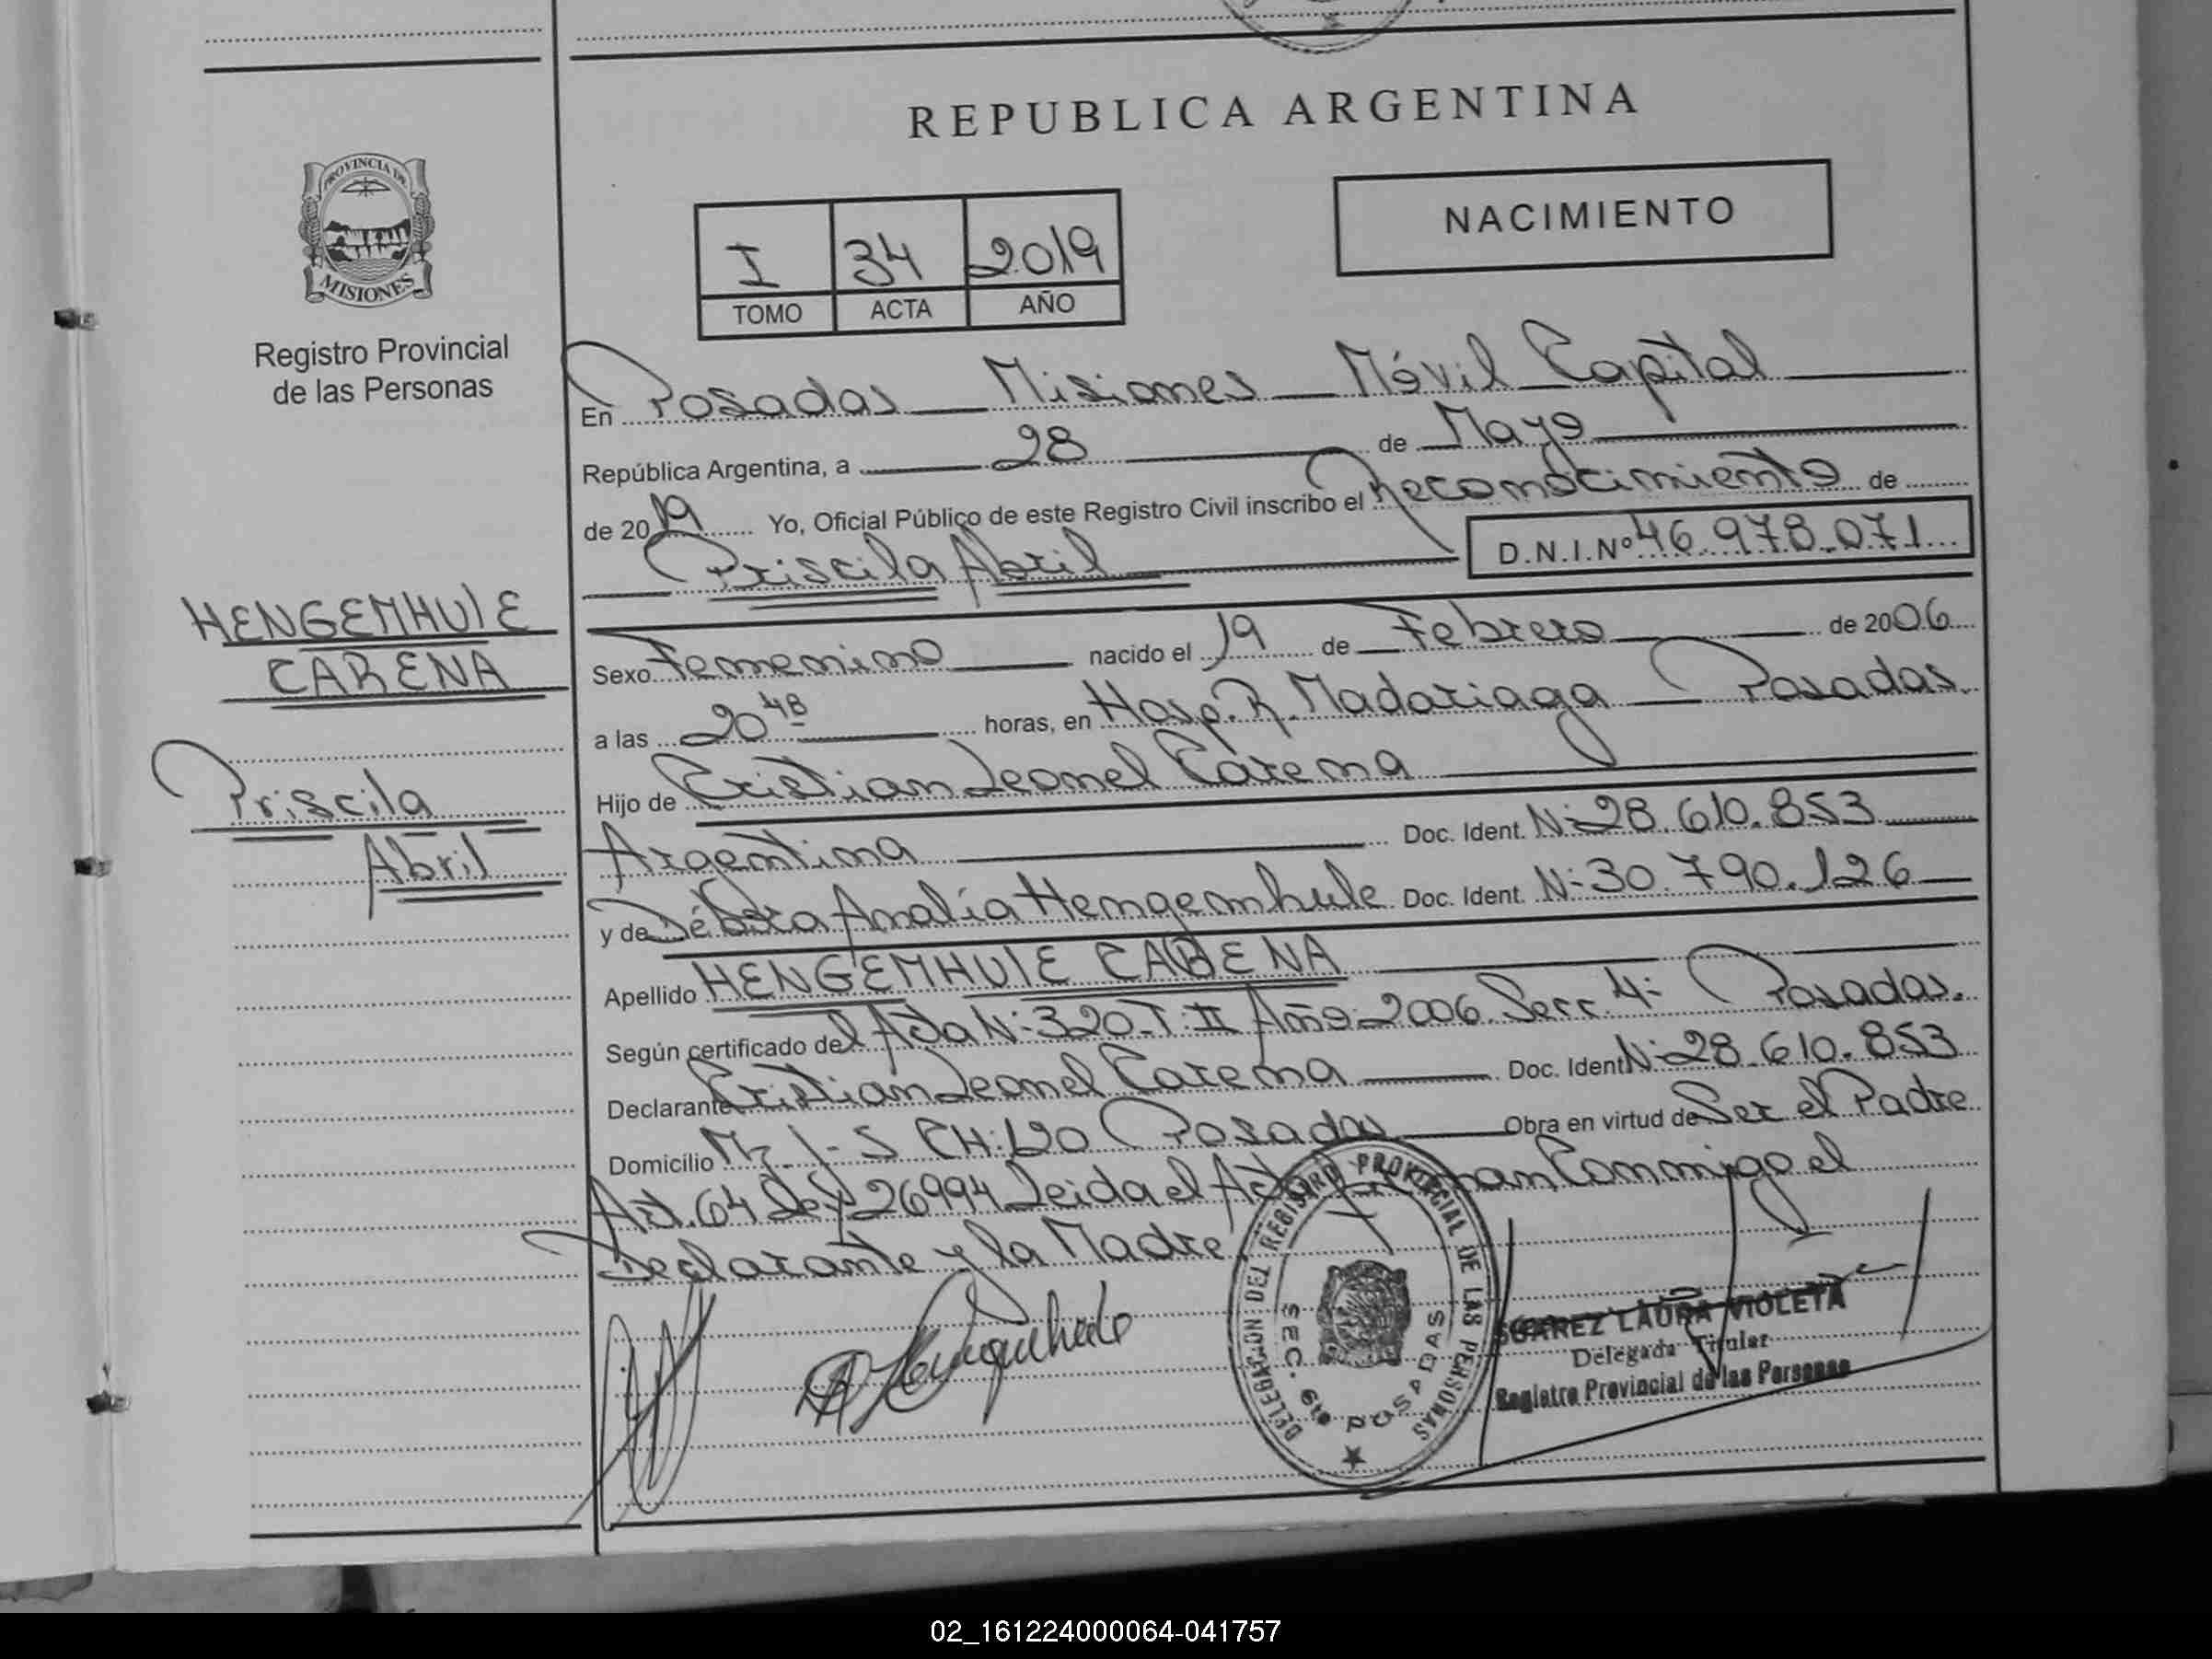 REPUBLICA ARGENTINA
PROVINCIA DE
MISIONES
Registro Provincial
de las Personas
NACIMIENTO
I 34 2019
TOMO ACTA AÑO
En Posadas Misiones Móvil Capital
República Argentina, a 28 de Mayo
de 2019 Yo, Oficial Público de este Registro Civil inscribo el Reconocimiento de
Priscila Abril D.N.I.Nº 46.978.071
HENGEMHULE
CARENA
Priscila
Abril
Sexo Femenino nacido el 19 de Febrero de 2006
a las 20 48 horas, en Hosp. R. Madariaga Posadas.
Hijo de Cristian Leonel Carena
Argentina Doc. Ident. Nº 28.610.853
y de Débora Analía Hengemhule Doc. Ident. Nº 30.790.126
Apellido HENGEMHULE CARENA
Según certificado del Acta Nº 320-T: II Año: 2006 Secc. 4ª Posadas.
Declarante Cristian Leonel Carena Doc. Ident Nº 28.610.853
Domicilio Mz. I-S CH:120 Posadas Obra en virtud de Ser el Padre
Art. 64 Ley 26994 Leida el Acta Conmigo el
Declarante y la Madre
DELEGACION DEL REGISTRO PROVINCIAL DE LAS PERSONAS
SEC. 6ta POSADAS
SUAREZ LAURA VIOLETA
Delegada Titular
Registro Provincial de las Personas
02_161224000064-041757